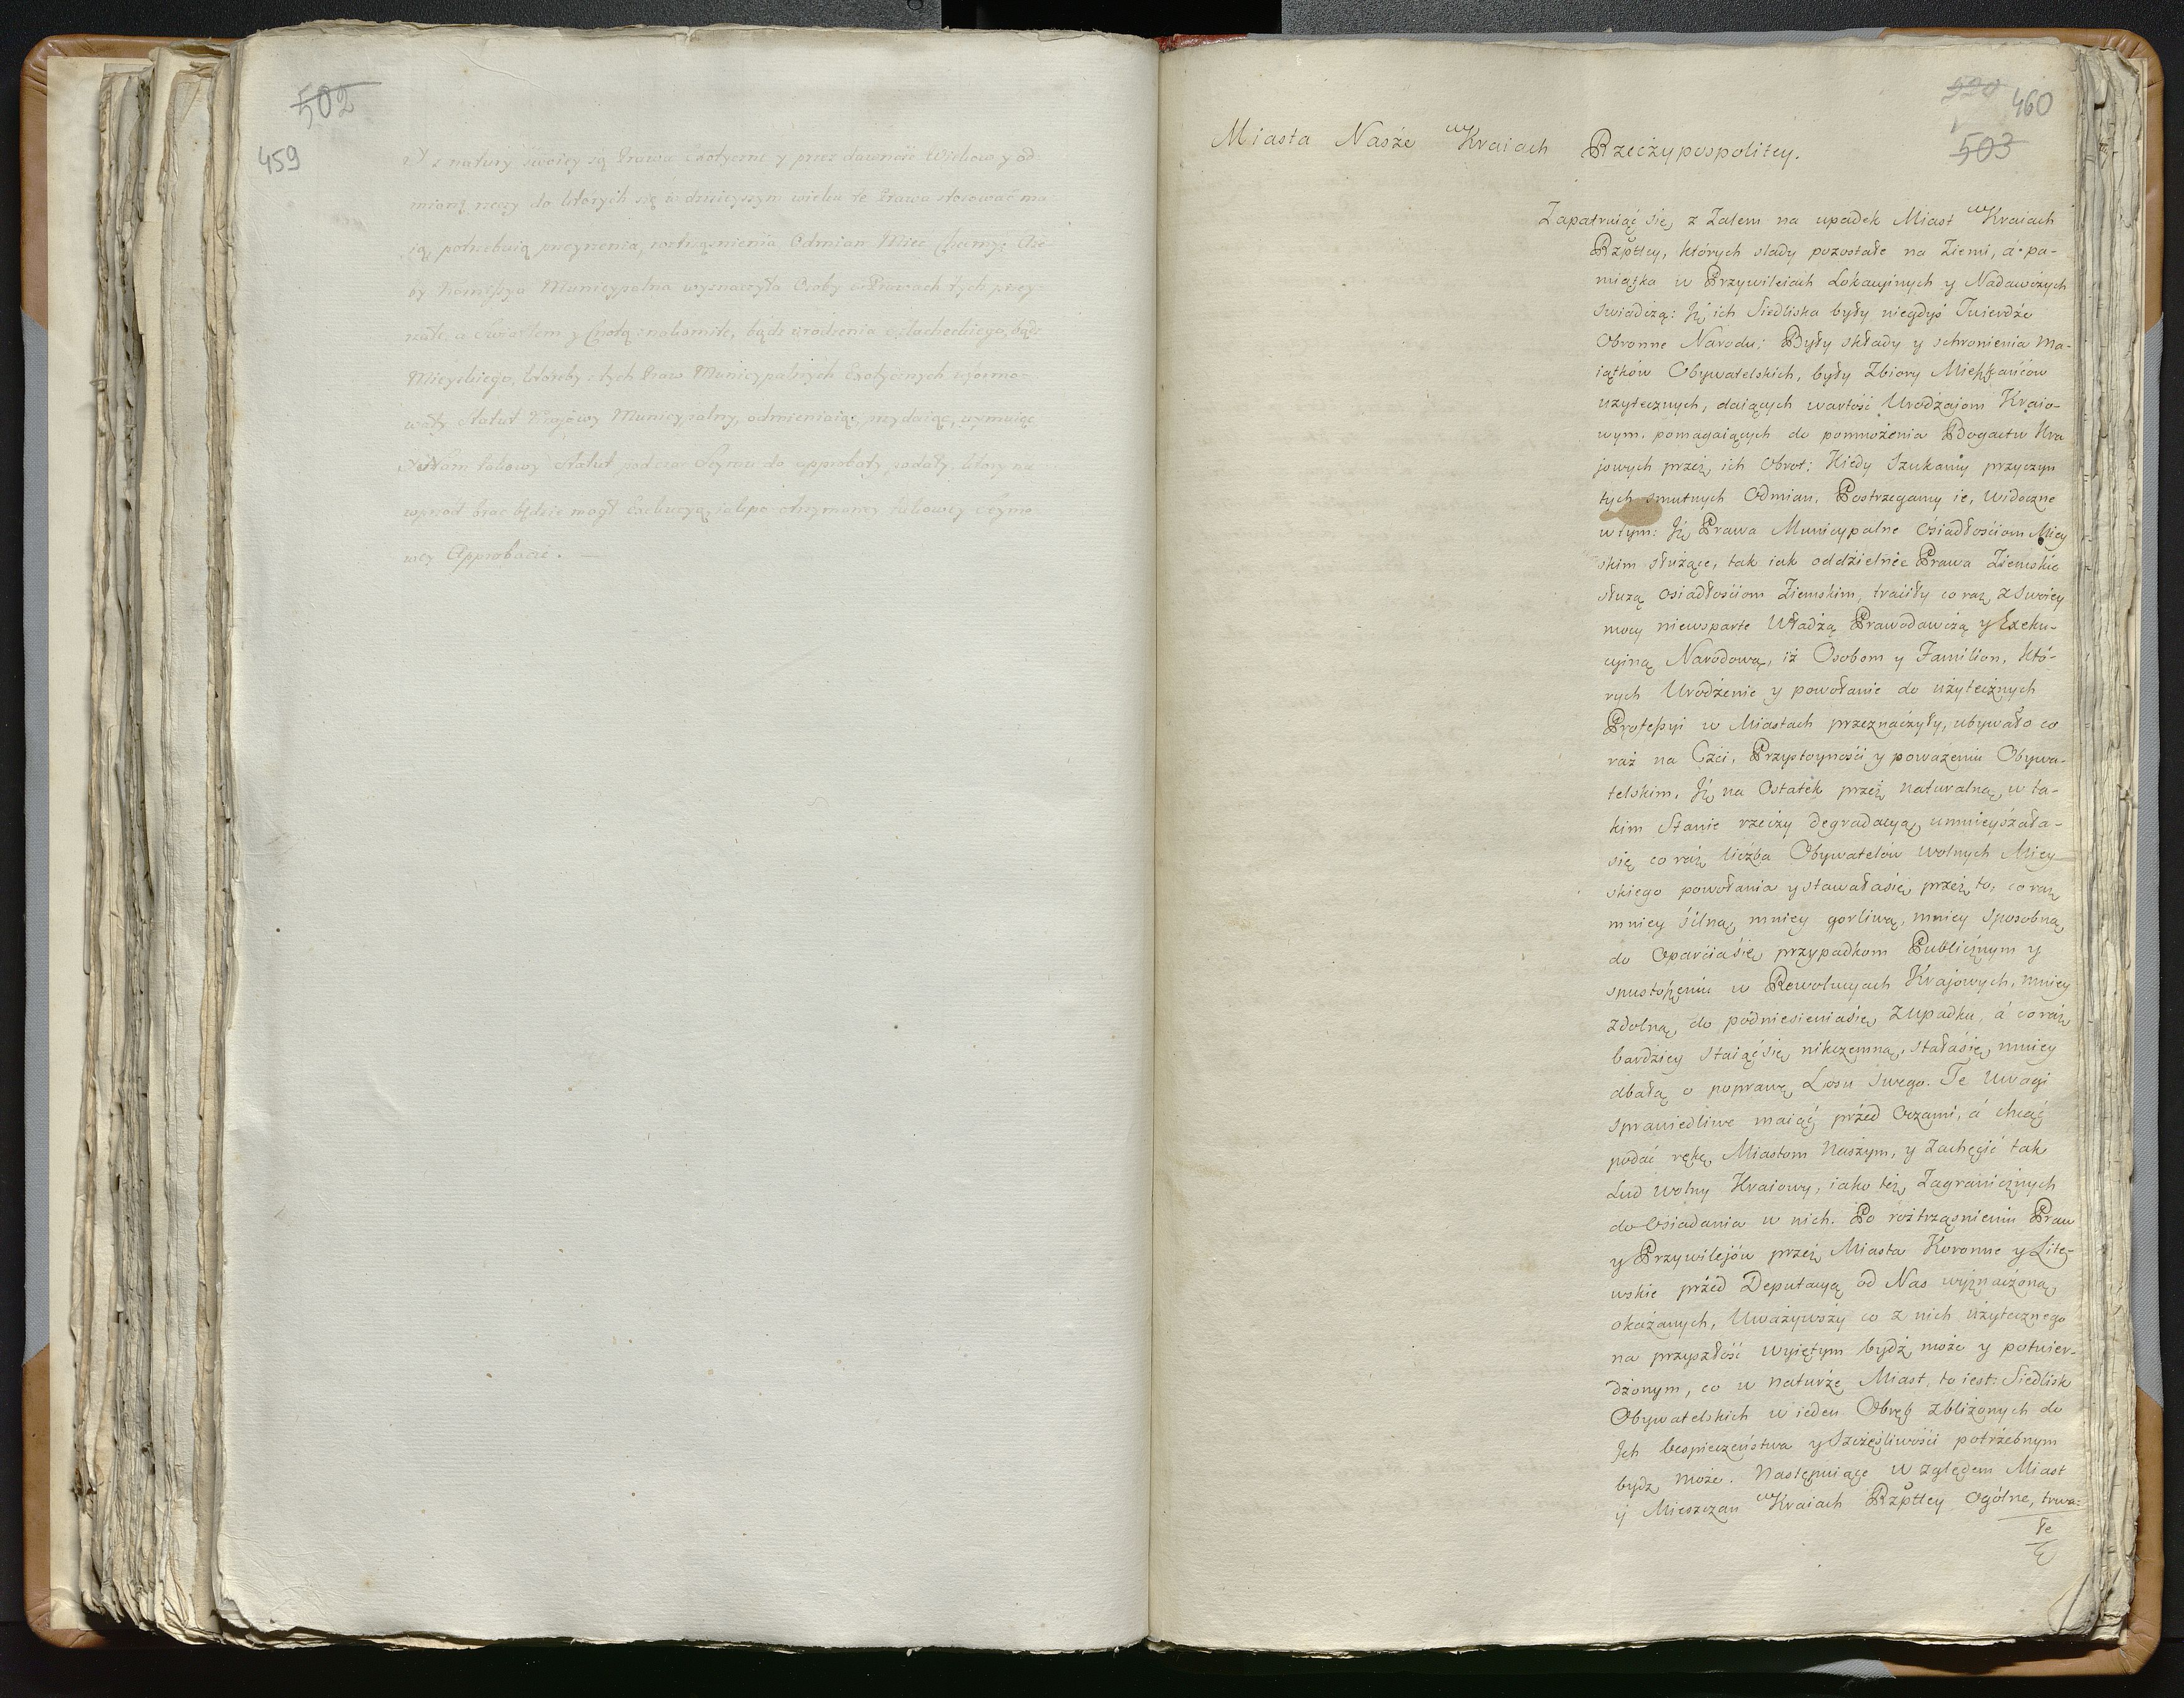 502
459
Y z natury swoiey są Prawa exotyczne y przez dawność Wieków y od
mianę rzeczy do których się w dzisieyszym wieku te Prawa stosować ma
ią, potrzebuią przeyrzenia, roztrząśnienia Odmian Mieć chcemy: Aże-
by Kommissya Municypalna wyznaczyła Osoby w Prawach tych przey-
rzałe, a światłem z Cnotą znakomite, bądź urodzenia szlacheckiego, bądź
Mieyskiego, któreby z tych Praw Municypalnych Exotycznych uformo-
wały statut Kraiowy Municypalny, odmieniaiąc, przydaiąc, uymuiąc
Nam takowy statut podczas Seymu do approbaty podały, który na
wprzód brać będzie mógł Exekucyą, iak po otrzymaney takowey Seymo
wey Approbacie. —
530 460
503
Miasta Nasze w Kraiach Rzeczypospolitey.
Zapatruiąć się z Zalem na upadek Miast w Kraiach
Rzpttey, których slady pozostałe na Ziemi, á pa-
miątka w Przywileiach Lokacyinych y Nadawczych
swiadczą: Iż ich Siedliska były niegdyś Twierdze
Obronne Narodu; Były składy y schronienia Ma-
iątków Obywatelskich, były Zbiory Mieszkańców
uzytecznych, daiących wartość Urodzaiom Kraio-
wym, pomagaiących do pomnożenia Bogactw Kra
jowych przez ich Obrot; Kiedy Szukamy przyczyn
tych smutnych Odmian, Postrzegamy ie, Widoczne
w tym: Iż Prawa Municypalne Osiadłościom Miey
skim służące, tak iak oddzielnée Prawa Ziemskie
służą osiadłościom Ziemskim, traciły co raz z Swoiey
mocy niewsparte Władzą Prawodawczą y Exeku-
cyiną Narodową, iż Osobom y Familiom, Któ-
rych Urodzenie y powołanie do użytecznych
Professyi w Miastach przeznaczyły, ubywało co
raz na Czci, Przystoyności y poważeniu Obywa-
telskim, Iż na Ostatek przez naturalną w ta-
kim Stanie rzeczy degradacyą, umnieyszała-
się co raz liczba Obywatelów wolnych Miey
skiego powołania y stawała się przez to, co raz
mniey silną, mniey gorliwą, mniey sposobną
do Oparcia się przypadkom Publicznym y
spustoszeniu w Rewolucyach Krajowych, mniey
zdolną do podniesienia się z upadku, á co raz
bardziey staiąć się nikczemną, stała się mniey
dbałą o poprawę Losu swego. Te Uwagi
sprawiedliwe maiąć przed Oczami, á chcąć
podać rękę Miastom Naszym, y Zachęcić tak
Lud wolny Kraiowy, iako też Zagranicznych
do Osiadania w nich. Po roztrząśnieniu Praw
y Przywilejów przez Miasta Koronne y Lite-
wskie przed Deputacyą od Nas wyznaczoną
okazanych, Uważywszy co z nich użytecznego
na przyszłość wyiętym bydź może y potwier-
dzonym, co w naturze Miast, to iest: Siedlisk
Obywatelskich w ieden Obręb zbliżonych do
Ich bespieczeństwa y Szczęśliwości potrzebnym
bydz może. Następuiące w zględem Miast
y Mieszczan w Kraiach Rzpttey Ogólne, trwa-
łe